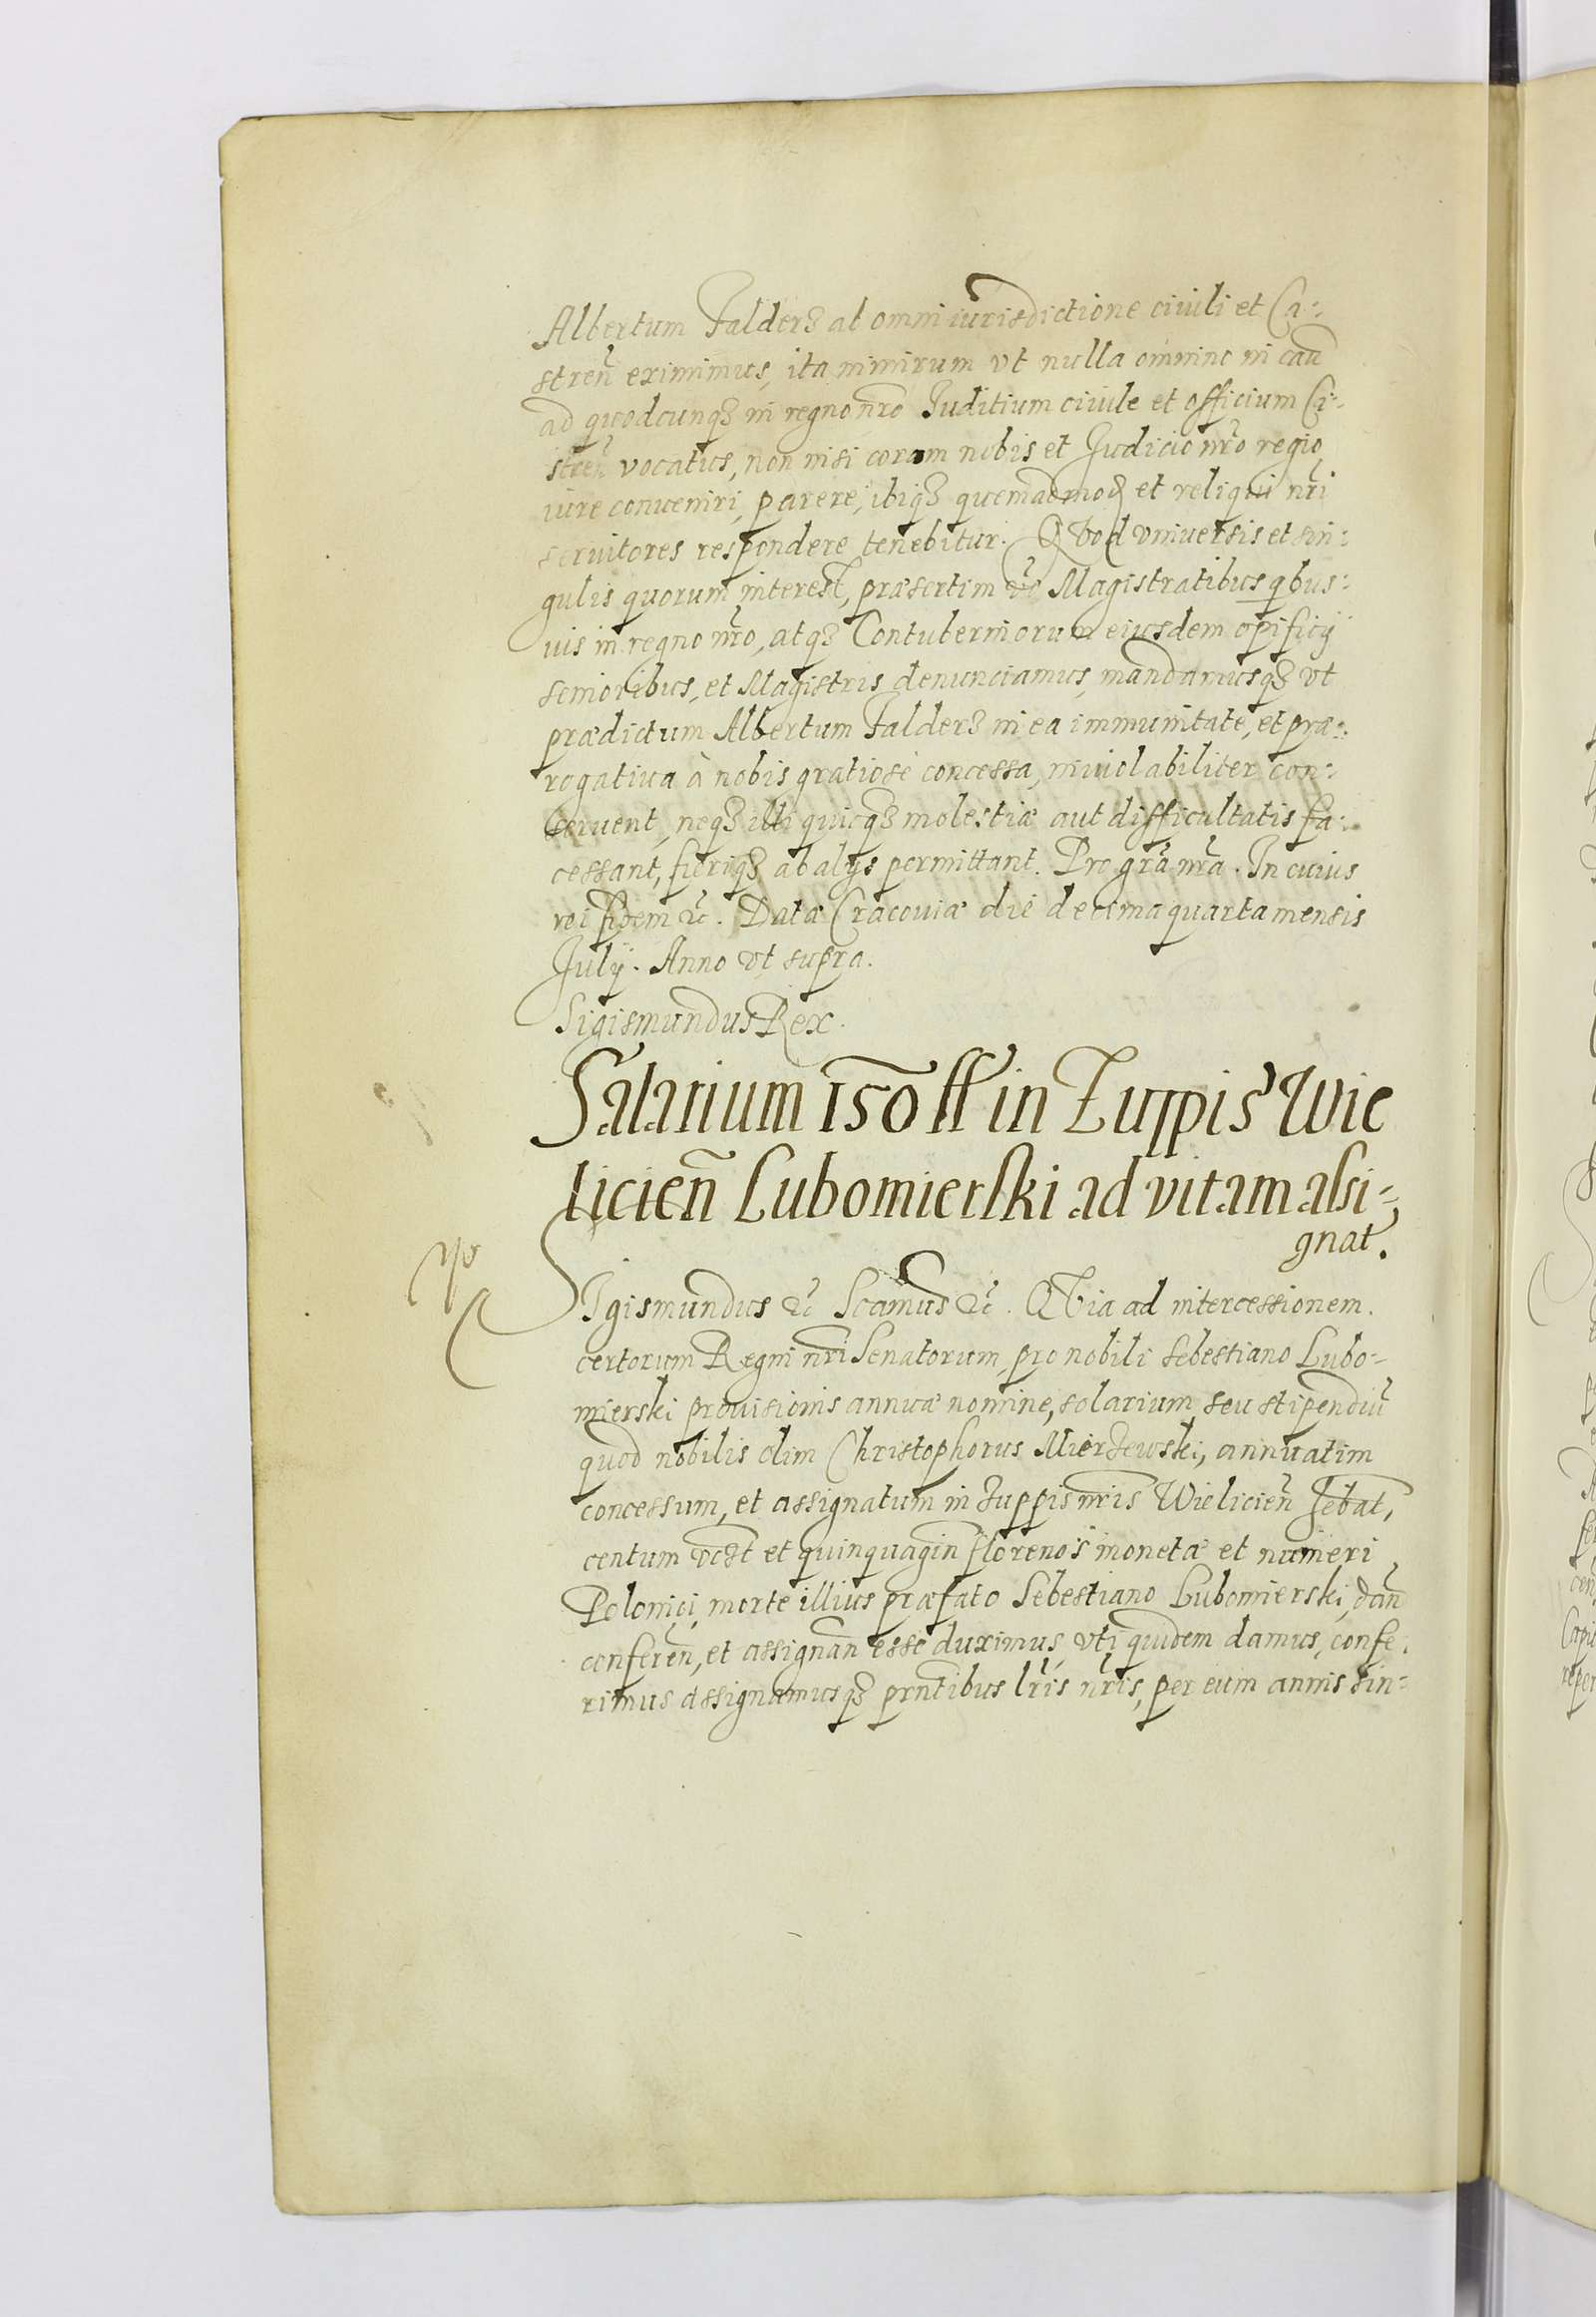 Albertum Falderz ab omni iurisdictione ciuili et Ca-
streñ eximimus, ita nimirum vt nulla omnino in cau
ad quodcunqz in regno nr̃o Iuditium ciuile et officium Ca-
streñ vocatus, non nisi coram nobis et Judicio nr̃o regio
iure conueniri, parere, ibiqz quemadmod et reliqui nr̃i
seruitores respondere tenebitur. QVod vniuersis et sin-
gulis quorum interest, præsertim vo Magistratibus qbus-
uis in regno nr̃o, atqz Contuberniorum eiusdem opificij
senioribus, et Magistris denunciamus, mandamusqz vt
prædictum Albertum Falderz in ea immunitate, et præ-
rogatiua à nobis gratiose concessa, inuiolabiliter con-
seruent, neqz illi quicqz molestiæ aut difficultatis fa-
cessant, fieriqz ab alijs permittant. Pro grã nr̃a. In cuius
rei fidem &c. Datæ Cracouiæ die decima quarta mensis
Julij. Anno vt supra.
Sigismundus Rex.
Salarium 150 ff in Zuppis Wie
licieñ Lubomierski ad vitam assi-
gnat.
SIgismundus &c Scimus &c. QVia ad intercessionem
certorum Regni nr̃i Senatorum, pro nobili Sebestiano Lubo-
mierski prouisionis annuæ nomine, salarium seu stipendiũ
quod nobilis olim Christophorus Mierzewski, annuatim
concessum, et assignatum in zuppis nr̃is Wielicieñ hebat,
centum vczt et quinquagin florenos monetæ et numeri
Polonici, morte illius præfato Sebestiano Lubomierski, dañ
confereñ, et assignañ esse duximus, vti quidem damus, confe-
rimus assignamusqz prñtibus lr̃is nr̃is, per eum annis sin-